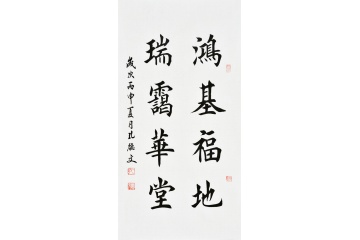 鴻基福地
瑞靄華堂
歲次丙申夏月孔德文